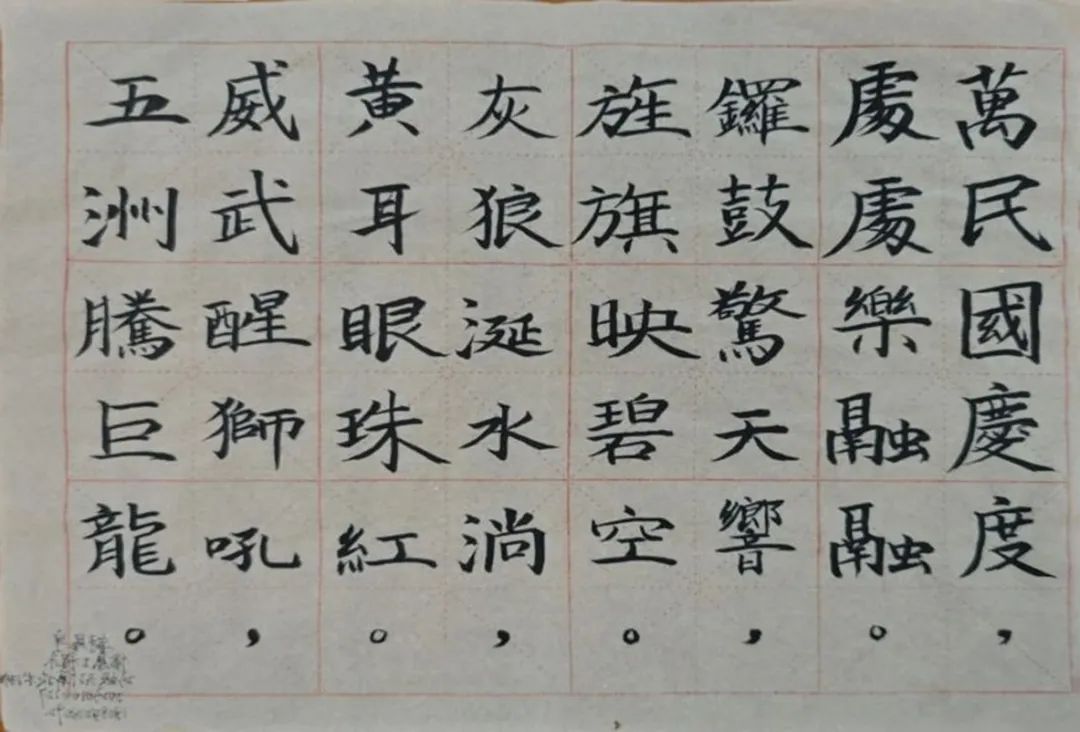 萬民國慶度，
處處樂融融。
鑼鼓驚天響，
旌旗映碧空。
灰狼涎水淌，
黄耳眼珠紅。
威武醒獅吼，
五洲騰巨龍。